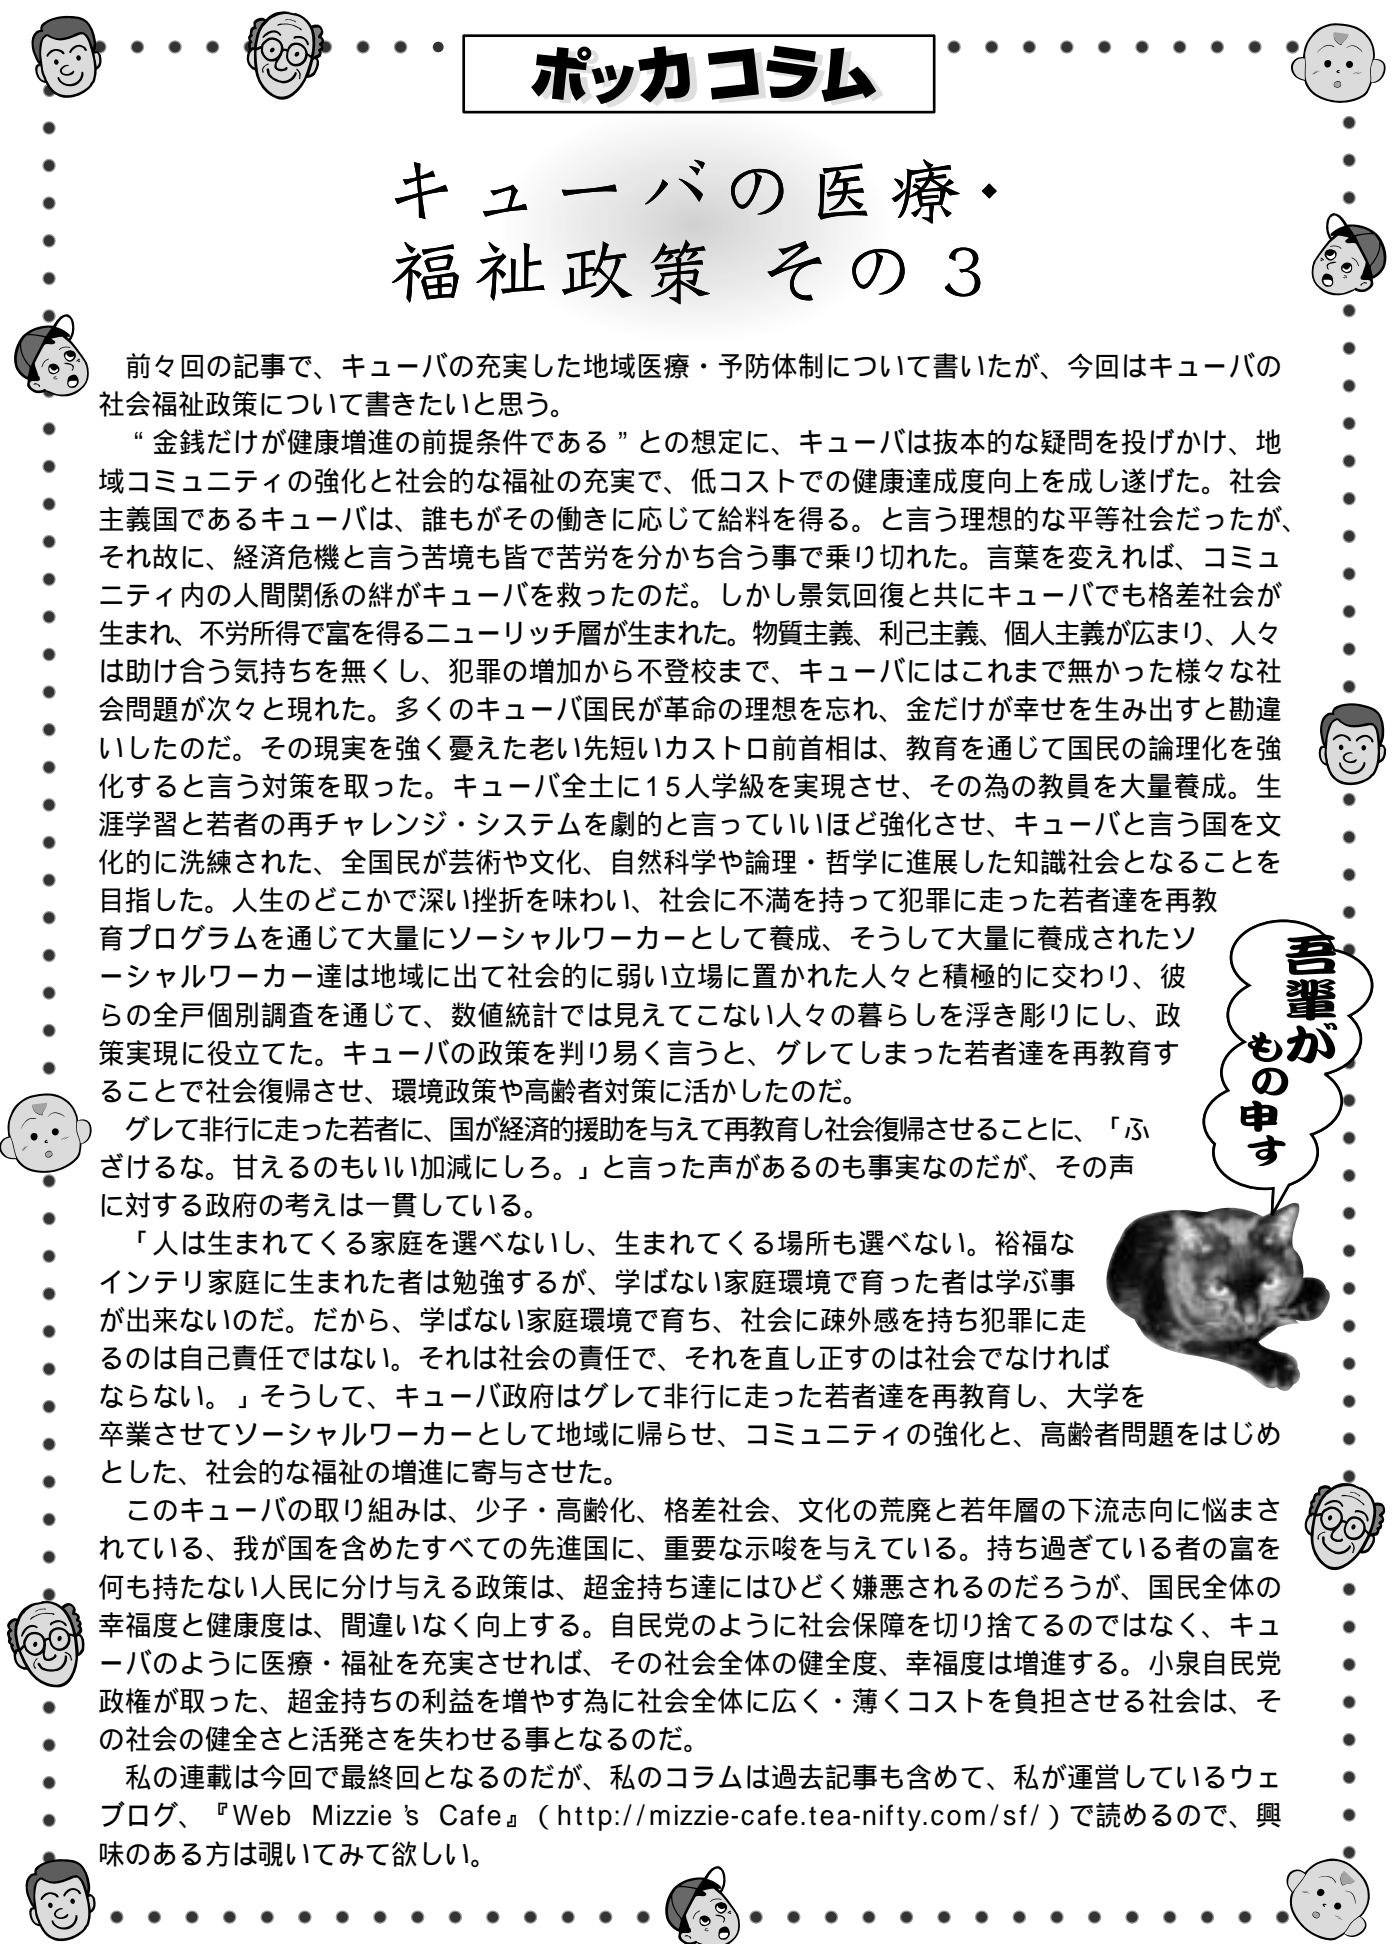 ポッカコラム
キューバの医療・
福祉政策 その3
前々回の記事で、キューバの充実した地域医療・予防体制について書いたが、今回はキューバの
社会福祉政策について書きたいと思う。
“金銭だけが健康増進の前提条件である”との想定に、キューバは抜本的な疑問を投げかけ、地
域コミュニティの強化と社会的な福祉の充実で、低コストでの健康達成度向上を成し遂げた。社会
主義国であるキューバは、誰もがその働きに応じて給料を得る。と言う理想的な平等社会だったが、
それ故に、経済危機と言う苦境も皆で苦労を分かち合う事で乗り切れた。言葉を変えれば、コミュ
ニティ内の人間関係の絆がキューバを救ったのだ。しかし景気回復と共にキューバでも格差社会が
生まれ、不労所得で富を得るニューリッチ層が生まれた。物質主義、利己主義、個人主義が広まり、人々
は助け合う気持ちを無くし、犯罪の増加から不登校まで、キューバにはこれまで無かった様々な社
会問題が次々と現れた。多くのキューバ国民が革命の理想を忘れ、金だけが幸せを生み出すと勘違
いしたのだ。その現実を強く憂えた老い先短いカストロ前首相は、教育を通じて国民の論理化を強
化すると言う対策を取った。キューバ全土に15人学級を実現させ、その為の教員を大量養成。生
涯学習と若者の再チャレンジ・システムを劇的と言っていいほど強化させ、キューバと言う国を文
化的に洗練された、全国民が芸術や文化、自然科学や論理・哲学に進展した知識社会となることを
目指した。人生のどこかで深い挫折を味わい、社会に不満を持って犯罪に走った若者達を再教
育プログラムを通じて大量にソーシャルワーカーとして養成、そうして大量に養成されたソ
ーシャルワーカー達は地域に出て社会的に弱い立場に置かれた人々と積極的に交わり、彼
らの全戸個別調査を通じて、数値統計では見えてこない人々の暮らしを浮き彫りにし、政
策実現に役立てた。キューバの政策を判り易く言うと、グレてしまった若者達を再教育す
ることで社会復帰させ、環境政策や高齢者対策に活かしたのだ。
グレて非行に走った若者に、国が経済的援助を与えて再教育し社会復帰させることに、「ふ
ざけるな。甘えるのもいい加減にしろ。」と言った声があるのも事実なのだが、その声
に対する政府の考えは一貫している。
「人は生まれてくる家庭を選べないし、生まれてくる場所も選べない。裕福な
インテリ家庭に生まれた者は勉強するが、学ばない家庭環境で育った者は学ぶ事
が出来ないのだ。だから、学ばない家庭環境で育ち、社会に疎外感を持ち犯罪に走
るのは自己責任ではない。それは社会の責任で、それを直し正すのは社会でなければ
ならない。」そうして、キューバ政府はグレて非行に走った若者達を再教育し、大学を
卒業させてソーシャルワーカーとして地域に帰らせ、コミュニティの強化と、高齢者問題をはじめ
とした、社会的な福祉の増進に寄与させた。
このキューバの取り組みは、少子・高齢化、格差社会、文化の荒廃と若年層の下流志向に悩まさ
れている、我が国を含めたすべての先進国に、重要な示唆を与えている。持ち過ぎている者の富を
何も持たない人民に分け与える政策は、超金持ち達にはひどく嫌悪されるのだろうが、国民全体の
幸福度と健康度は、間違いなく向上する。自民党のように社会保障を切り捨てるのではなく、キュ
ーバのように医療・福祉を充実させれば、その社会全体の健全度、幸福度は増進する。小泉自民党
政権が取った、超金持ちの利益を増やす為に社会全体に広く・薄くコストを負担させる社会は、そ
の社会の健全さと活発さを失わせる事となるのだ。
私の連載は今回で最終回となるのだが、私のコラムは過去記事も含めて、私が運営しているウェ
ブログ、『Web Mizzie's Cafe』(http://mizzie-cafe.tea-nifty.com/sf/)で読めるので、興
味のある方は覗いてみて欲しい。
吾輩が
もの申す